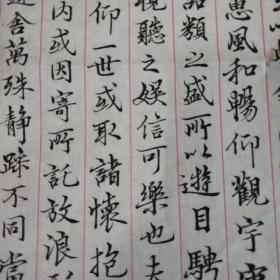 惠風和暢仰觀宇宙
品類之盛所以遊目騁
視聽之娛信可樂也夫
仰一世或取諸懷抱
內或因寄所託放浪形
殊靜躁不同當